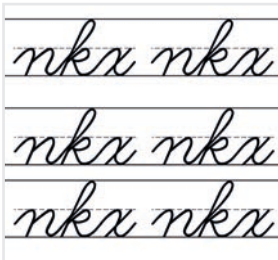 nkx nkx
nkx nkx
nkx nkx